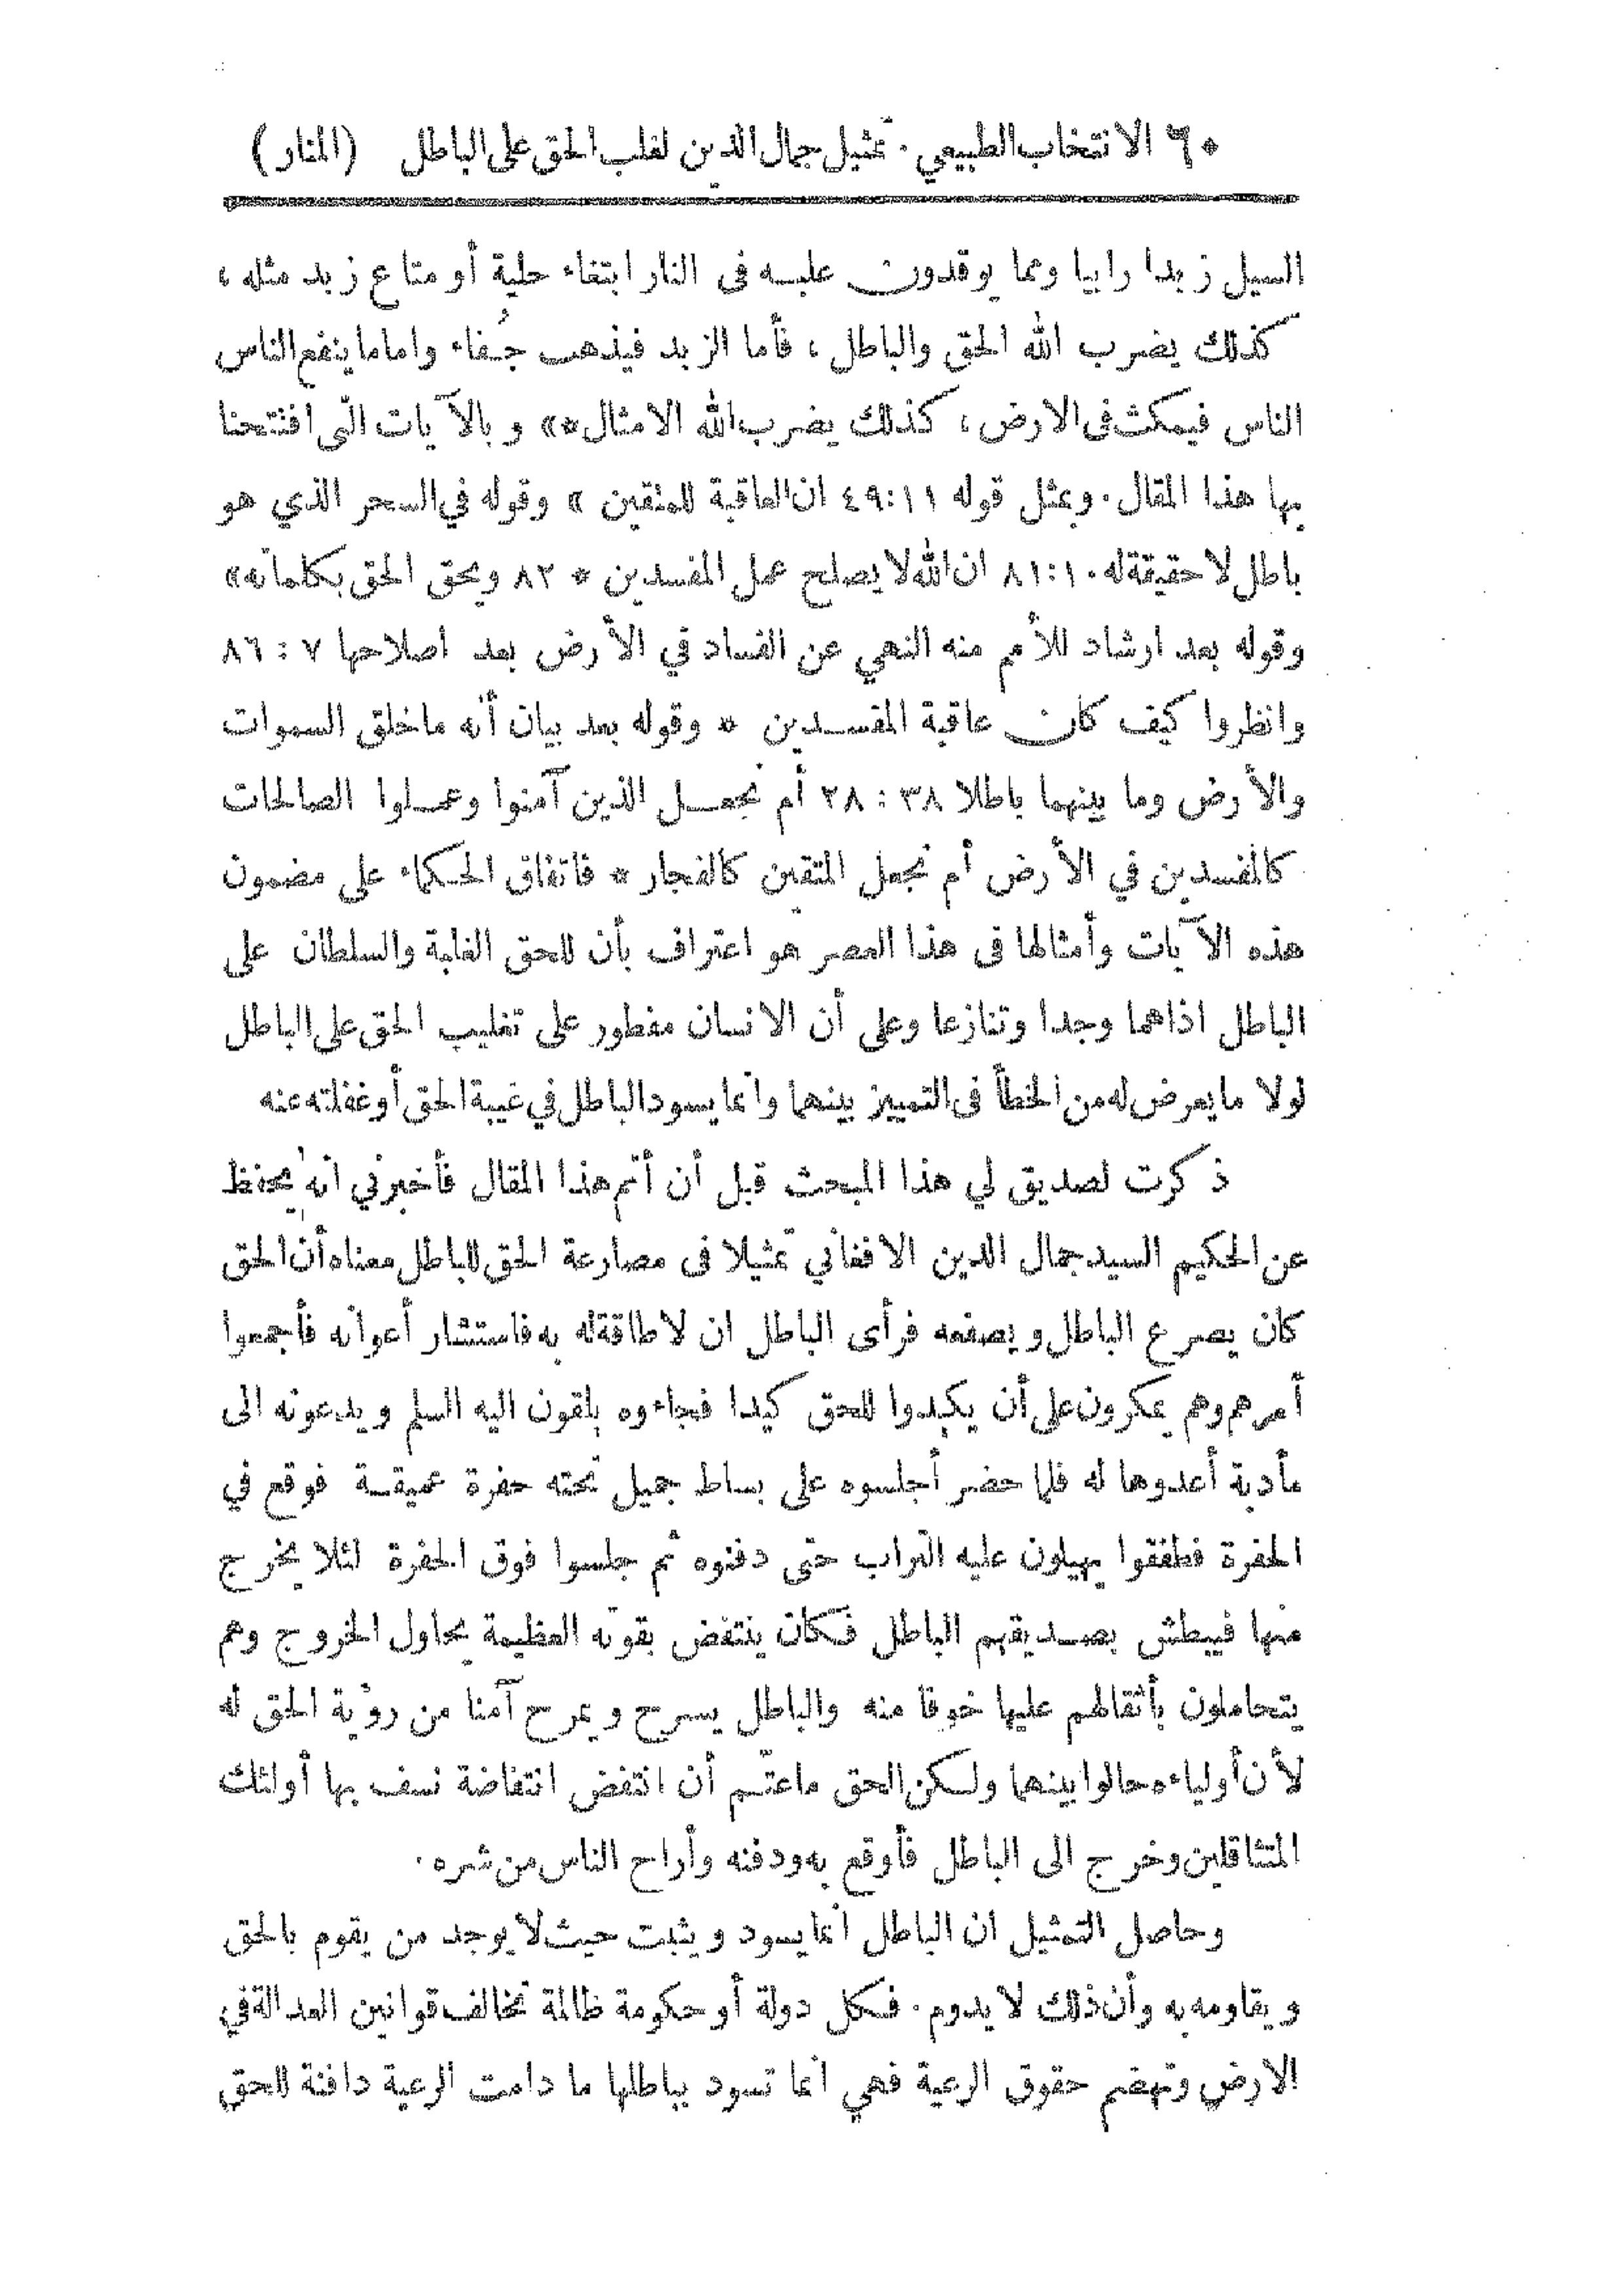 ٦٠ الانتخاب الطبيعي . تمثيل جمال الدين لغلب الحق على الباطل (المنار)
السيل زبدا رابيا ومما يوقدون عليه فى النار ابتغاء حلية أو متاع زبد مثله ،
كذلك يضرب الله الحق والباطل ، فأما الزبد فيذهب جُفاء واماما ينفع الناس
الناس فيمكث فى الارض ، كذلك يضرب الله الامثال *» وبالآيات التى افتتحنا
بها هذا المقال . وبمثل قوله ١١ : ٤٩ ان العاقبة للمتقين » وقوله في السحر الذي هو
باطل لا حقيقة له ١٠ : ٨١ ان الله لا يصلح عمل المفسدين * ٨٢ ويحق الحق بكلماته »
وقوله بعد ارشاد للأمم منه النهي عن الفساد في الأرض بعد اصلاحها ٧ : ٨٦
وانظروا كيف كان عاقبة المفسدين * وقوله بعد بيان أنه ما خلق السموات
والأرض وما بينهما باطلا ٣٨ : ٢٨ أم نجعل الذين آمنوا وعملوا الصالحات
كالمفسدين في الأرض أم نجعل المتقين كالفجار * فاتفاق الحكماء على مضمون
هذه الآيات وأمثالها فى هذا العصر هو اعتراف بأن للحق الغلبة والسلطان على
الباطل اذا هما وجدا وتنازعا وعلى أن الانسان مفطور على تغليب الحق على الباطل
لولا ما يعرض له من الخطأ فى التمييز بينهما وانما يسود الباطل في غيبة الحق أو غفلته عنه
ذكرت لصديق لي هذا المبحث قبل أن أتم هذا المقال فأخبرني انه يحفظ
عن الحكيم السيد جمال الدين الافغاني تمثيلا فى مصارعة الحق للباطل معناه أن الحق
كان يصرع الباطل ويصفعه فرأى الباطل ان لا طاقة له به فاستشار أعوانه فأجمعوا
أمرهم وهم يمكرون على أن يكيدوا للحق كيدا فجاءوه يلقون اليه السلم ويدعونه الى
مأدبة أعدوها له فلما حضر أجلسوه على بساط جميل تحته حفرة عميقة فوقع في
الحفرة فطفقوا يهيلون عليه التراب حتى دفنوه ثم جلسوا فوق الحفرة لئلا يخرج
منها فيبطش بصديقهم الباطل فكان ينتفض بقوته العظيمة يحاول الخروج وهم
يتحاملون بأثقالهم عليها خوفا منه والباطل يسرح ويمرح آمنا من رؤية الحق له
لأن أولياءه حالوا بينهما ولكن الحق ما عتّم أن انتفض انتفاضة نسف بها أولئك
المتثاقلين وخرج الى الباطل فأوقع به ودفنه وأراح الناس من شره .
وحاصل التمثيل ان الباطل انما يسود ويثبت حيث لا يوجد من يقوم بالحق
ويقاومه به وأن ذلك لا يدوم . فكل دولة أو حكومة ظالمة تخالف قوانين العدالة في
الارض وتهضم حقوق الرعية فهي انما تسود بباطلها ما دامت الرعية دافنة للحق